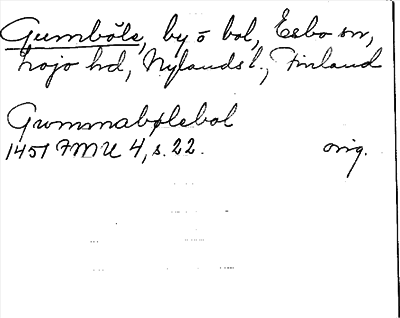 Gumböle, by o bol, Esbo sn,
Lojo hd, Nylands l., Finland
Gwmmabølebol
1451 FMU 4, s. 22. orig.